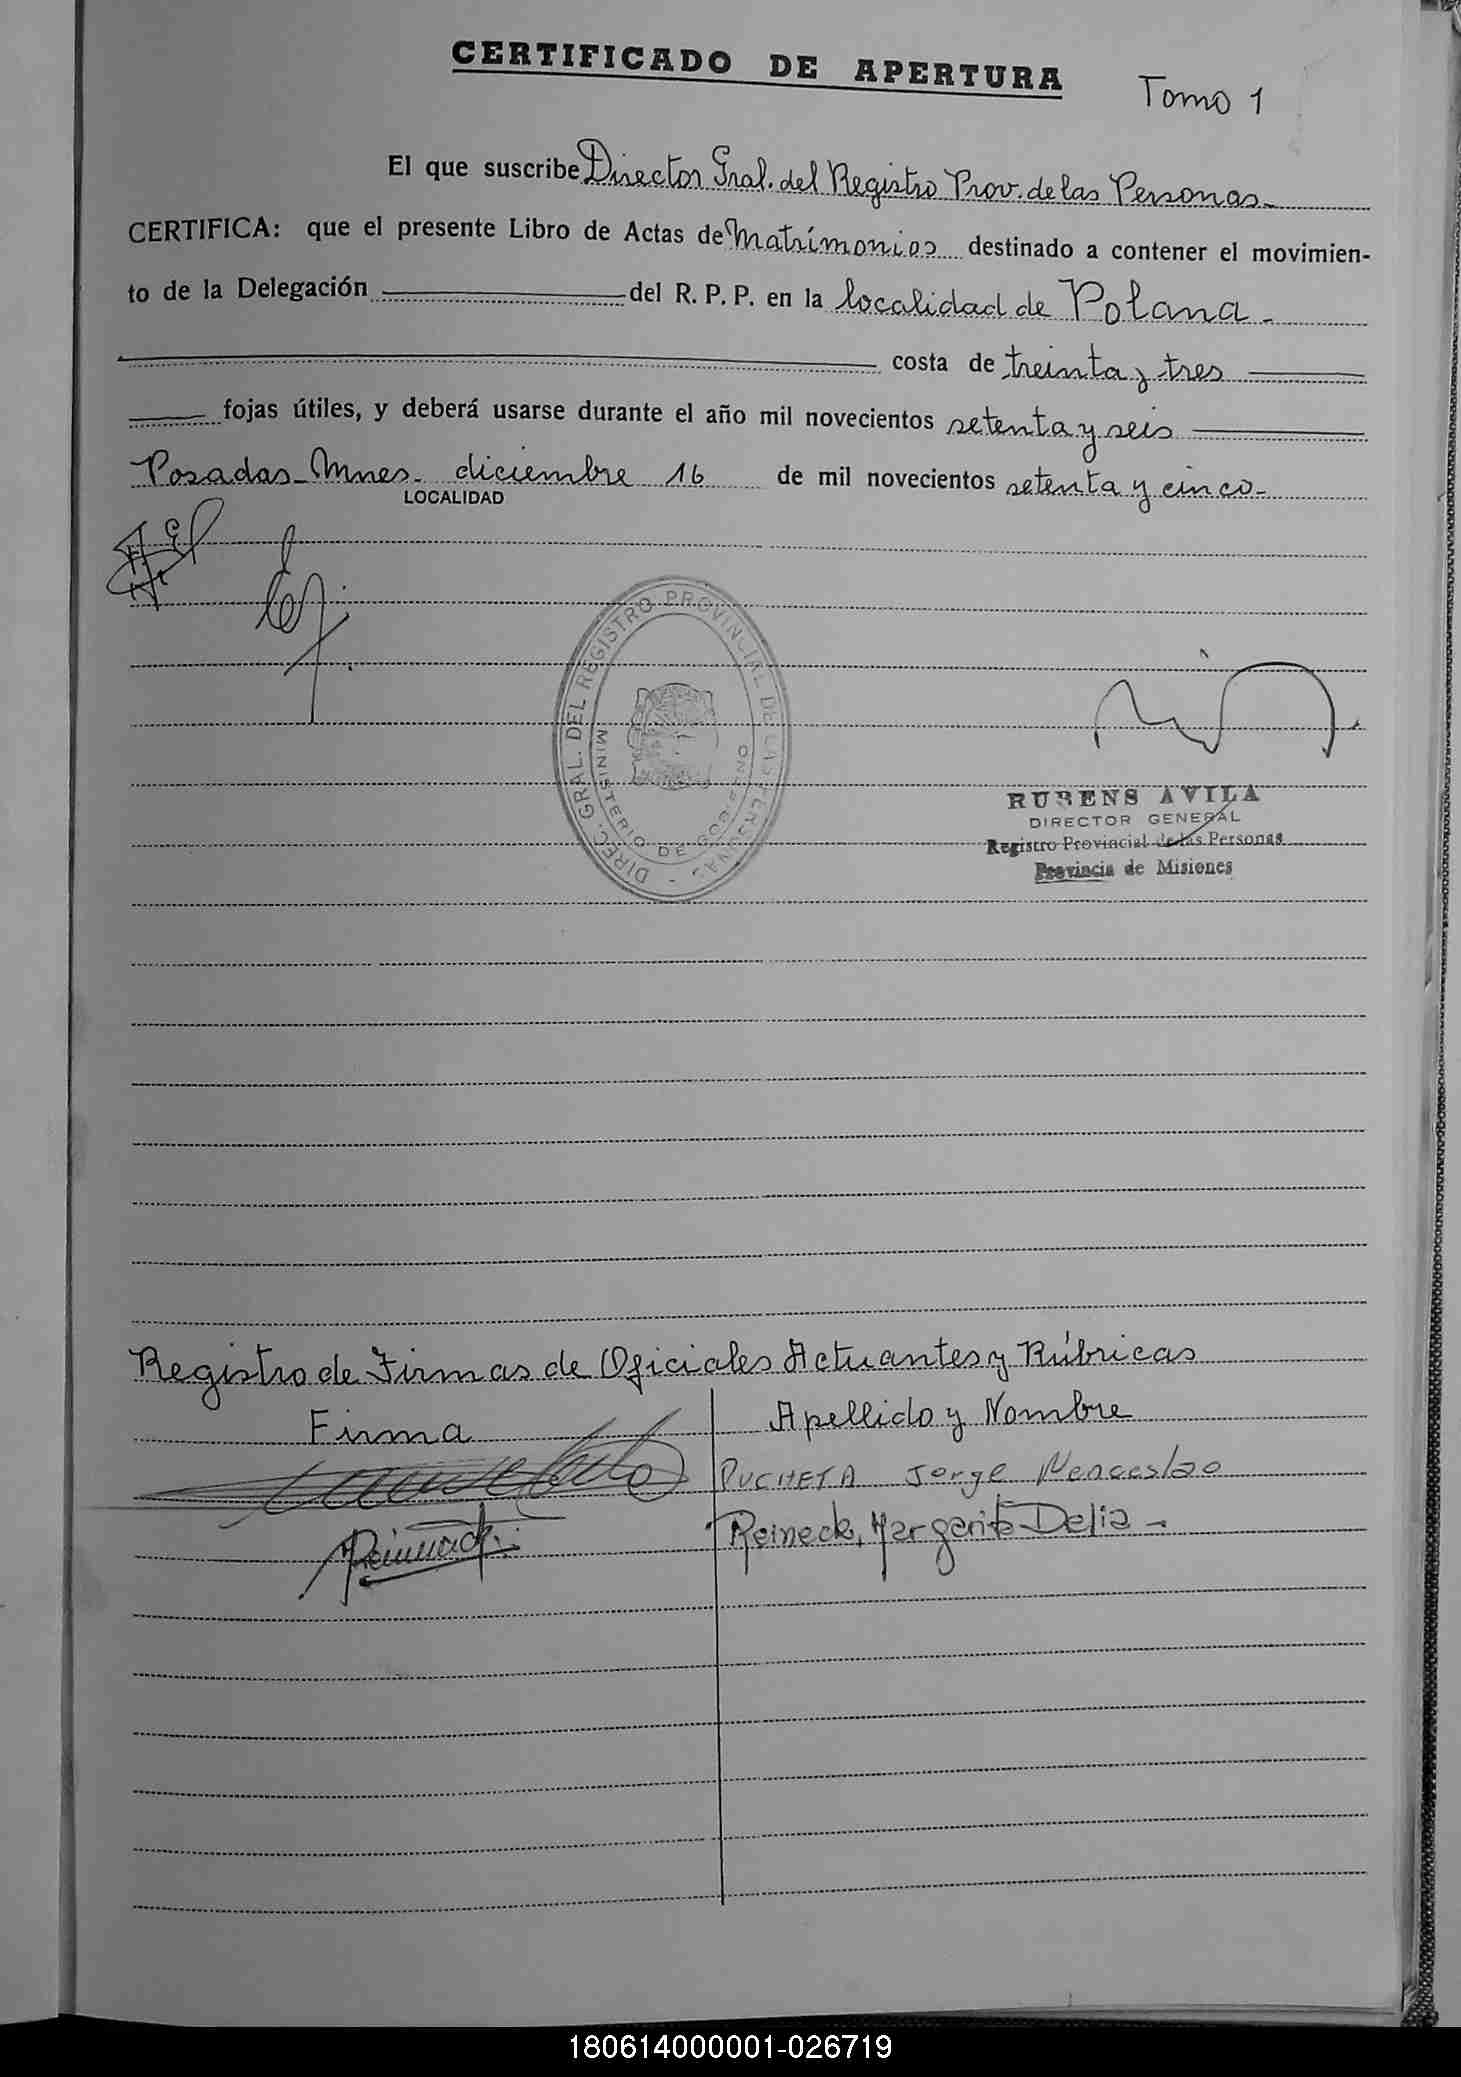 CERTIFICADO DE APERTURA
Tomo 1
El que suscribe Director Gral. del Registro Prov. de las Personas.
CERTIFICA: que el presente Libro de Actas de Matrimonios destinado a contener el movimien-
to de la Delegación del R. P. P. en la localidad de Polana -
costa de treinta y tres
fojas útiles, y deberá usarse durante el año mil novecientos setenta y seis
Posadas - Mnes. diciembre 16 de mil novecientos setenta y cinco -
LOCALIDAD
DIREC. GRAL. DEL REGISTRO PROVINCIAL DE LAS PERSONAS -
MINISTERIO DE GOBIERNO
RUBENS AVILA
DIRECTOR GENERAL
Registro Provincial de las Personas
Provincia de Misiones
Registro de Firmas de Oficiales Actuantes y Rúbricas
Firma Apellido y Nombre
PUCHETA Jorge Wenceslao
Reineck, Margarita Delia -
180614000001-026719